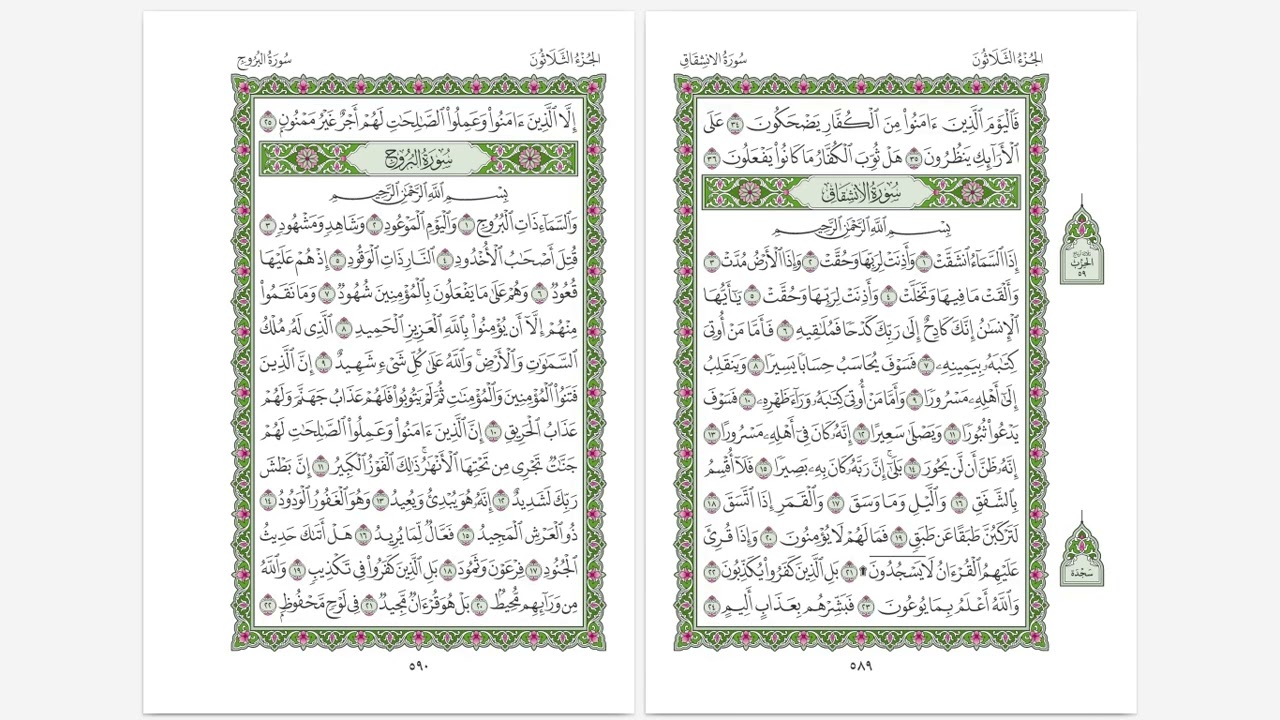 الجُزْءُ الثَّلَاثُونَ
سُورَةُ الانْشِقَاقِ
فَٱلْيَوْمَ ٱلَّذِينَ ءَامَنُوا۟ مِنَ ٱلْكُفَّارِ يَضْحَكُونَ ٣٤ عَلَى
ٱلْأَرَآئِكِ يَنظُرُونَ ٣٥ هَلْ ثُوِّبَ ٱلْكُفَّارُ مَا كَانُوا۟ يَفْعَلُونَ ٣٦
سُورَةُ الانْشِقَاقِ
بِسْمِ ٱللَّهِ ٱلرَّحْمَٰنِ ٱلرَّحِيمِ
إِذَا ٱلسَّمَآءُ ٱنشَقَّتْ ١ وَأَذِنَتْ لِرَبِّهَا وَحُقَّتْ ٢ وَإِذَا ٱلْأَرْضُ مُدَّتْ ٣
وَأَلْقَتْ مَا فِيهَا وَتَخَلَّتْ ٤ وَأَذِنَتْ لِرَبِّهَا وَحُقَّتْ ٥ يَٰٓأَيُّهَا
ٱلْإِنسَٰنُ إِنَّكَ كَادِحٌ إِلَىٰ رَبِّكَ كَدْحًا فَمُلَٰقِيهِ ٦ فَأَمَّا مَنْ أُوتِىَ
كِتَٰبَهُۥ بِيَمِينِهِۦ ٧ فَسَوْفَ يُحَاسَبُ حِسَابًا يَسِيرًا ٨ وَيَنقَلِبُ
إِلَىٰٓ أَهْلِهِۦ مَسْرُورًا ٩ وَأَمَّا مَنْ أُوتِىَ كِتَٰبَهُۥ وَرَآءَ ظَهْرِهِۦ ١٠ فَسَوْفَ
يَدْعُوا۟ ثُبُورًا ١١ وَيَصْلَىٰ سَعِيرًا ١٢ إِنَّهُۥ كَانَ فِىٓ أَهْلِهِۦ مَسْرُورًا ١٣
إِنَّهُۥ ظَنَّ أَن لَّن يَحُورَ ١٤ بَلَىٰٓ إِنَّ رَبَّهُۥ كَانَ بِهِۦ بَصِيرًا ١٥ فَلَآ أُقْسِمُ
بِٱلشَّفَقِ ١٦ وَٱلَّيْلِ وَمَا وَسَقَ ١٧ وَٱلْقَمَرِ إِذَا ٱتَّسَقَ ١٨
لَتَرْكَبُنَّ طَبَقًا عَن طَبَقٍ ١٩ فَمَا لَهُمْ لَا يُؤْمِنُونَ ٢٠ وَإِذَا قُرِئَ
عَلَيْهِمُ ٱلْقُرْءَانُ لَا يَسْجُدُونَ ۩ ٢١ بَلِ ٱلَّذِينَ كَفَرُوا۟ يُكَذِّبُونَ ٢٢
وَٱللَّهُ أَعْلَمُ بِمَا يُوعُونَ ٢٣ فَبَشِّرْهُم بِعَذَابٍ أَلِيمٍ ٢٤
٥٨٩
الحِزْب
٥٩
سَجْدَة
الجُزْءُ الثَّلَاثُونَ
سُورَةُ البُرُوجِ
إِلَّا ٱلَّذِينَ ءَامَنُوا۟ وَعَمِلُوا۟ ٱلصَّٰلِحَٰتِ لَهُمْ أَجْرٌ غَيْرُ مَمْنُونٍۭ ٢٥
سُورَةُ البُرُوجِ
بِسْمِ ٱللَّهِ ٱلرَّحْمَٰنِ ٱلرَّحِيمِ
وَٱلسَّمَآءِ ذَاتِ ٱلْبُرُوجِ ١ وَٱلْيَوْمِ ٱلْمَوْعُودِ ٢ وَشَاهِدٍ وَمَشْهُودٍ ٣
قُتِلَ أَصْحَٰبُ ٱلْأُخْدُودِ ٤ ٱلنَّارِ ذَاتِ ٱلْوَقُودِ ٥ إِذْ هُمْ عَلَيْهَا
قُعُودٌ ٦ وَهُمْ عَلَىٰ مَا يَفْعَلُونَ بِٱلْمُؤْمِنِينَ شُهُودٌ ٧ وَمَا نَقَمُوا۟
مِنْهُمْ إِلَّآ أَن يُؤْمِنُوا۟ بِٱللَّهِ ٱلْعَزِيزِ ٱلْحَمِيدِ ٨ ٱلَّذِى لَهُۥ مُلْكُ
ٱلسَّمَٰوَٰتِ وَٱلْأَرْضِ ۚ وَٱللَّهُ عَلَىٰ كُلِّ شَىْءٍ شَهِيدٌ ٩ إِنَّ ٱلَّذِينَ
فَتَنُوا۟ ٱلْمُؤْمِنِينَ وَٱلْمُؤْمِنَٰتِ ثُمَّ لَمْ يَتُوبُوا۟ فَلَهُمْ عَذَابُ جَهَنَّمَ وَلَهُمْ
عَذَابُ ٱلْحَرِيقِ ١٠ إِنَّ ٱلَّذِينَ ءَامَنُوا۟ وَعَمِلُوا۟ ٱلصَّٰلِحَٰتِ لَهُمْ
جَنَّٰتٌ تَجْرِى مِن تَحْتِهَا ٱلْأَنْهَٰرُ ۚ ذَٰلِكَ ٱلْفَوْزُ ٱلْكَبِيرُ ١١ إِنَّ بَطْشَ
رَبِّكَ لَشَدِيدٌ ١٢ إِنَّهُۥ هُوَ يُبْدِئُ وَيُعِيدُ ١٣ وَهُوَ ٱلْغَفُورُ ٱلْوَدُودُ ١٤
ذُو ٱلْعَرْشِ ٱلْمَجِيدُ ١٥ فَعَّالٌ لِّمَا يُرِيدُ ١٦ هَلْ أَتَىٰكَ حَدِيثُ
ٱلْجُنُودِ ١٧ فِرْعَوْنَ وَثَمُودَ ١٨ بَلِ ٱلَّذِينَ كَفَرُوا۟ فِى تَكْذِيبٍ ١٩ وَٱللَّهُ
مِن وَرَآئِهِم مُّحِيطٌۢ ٢٠ بَلْ هُوَ قُرْءَانٌ مَّجِيدٌ ٢١ فِى لَوْحٍ مَّحْفُوظٍۭ ٢٢
٥٩٠